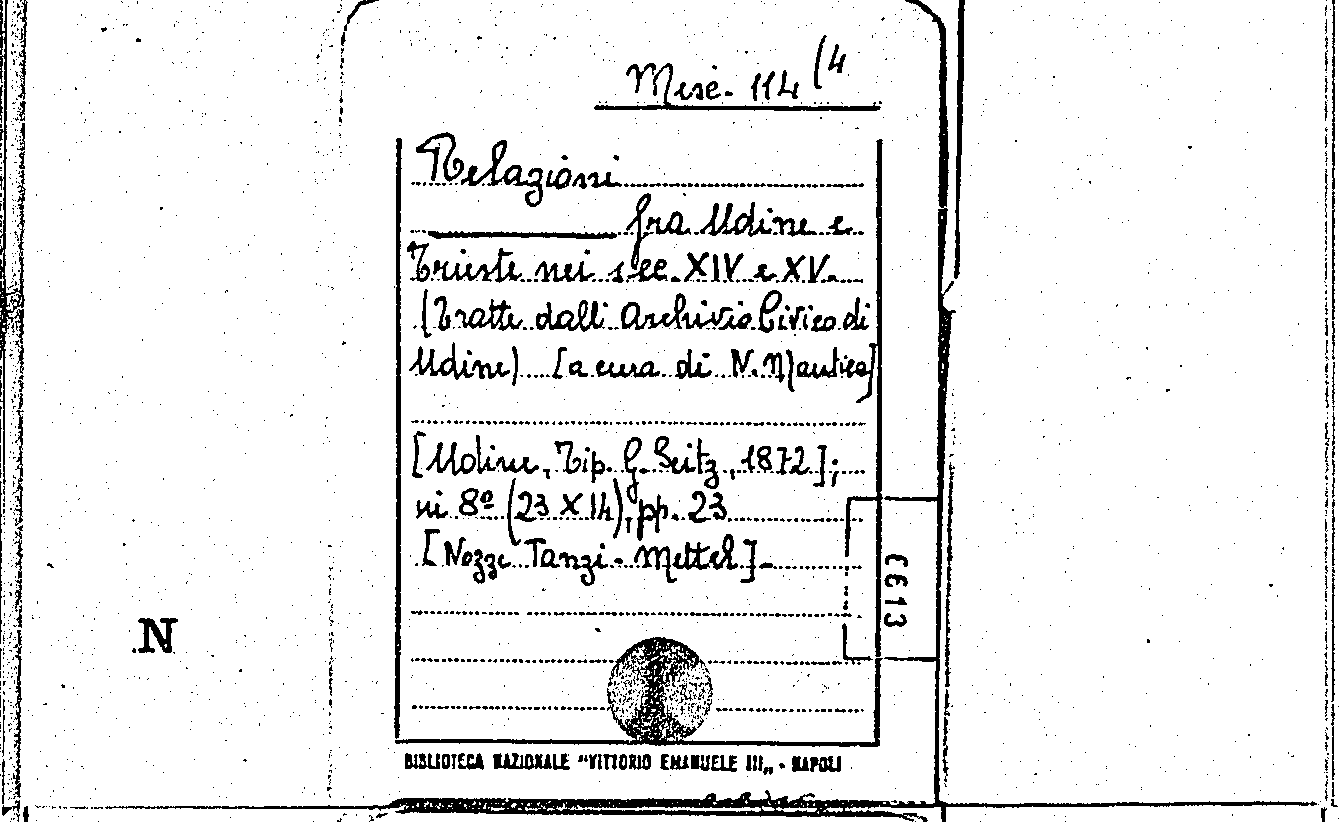 Misc. 114 (4
Relazioni
fra Udine e
Trieste nei sec. XIV e XV.
(Tratte dall'Archivio Civico di
Udine) [a cura di N. Mantica]
[Udine, Tip. G. Seitz, 1872];
in 8º (23 X 14), pp. 23
[Nozze Tanzi - Mettel] -
6613
N
BIBLIOTECA NAZIONALE "VITTORIO EMANUELE III„ - NAPOLI